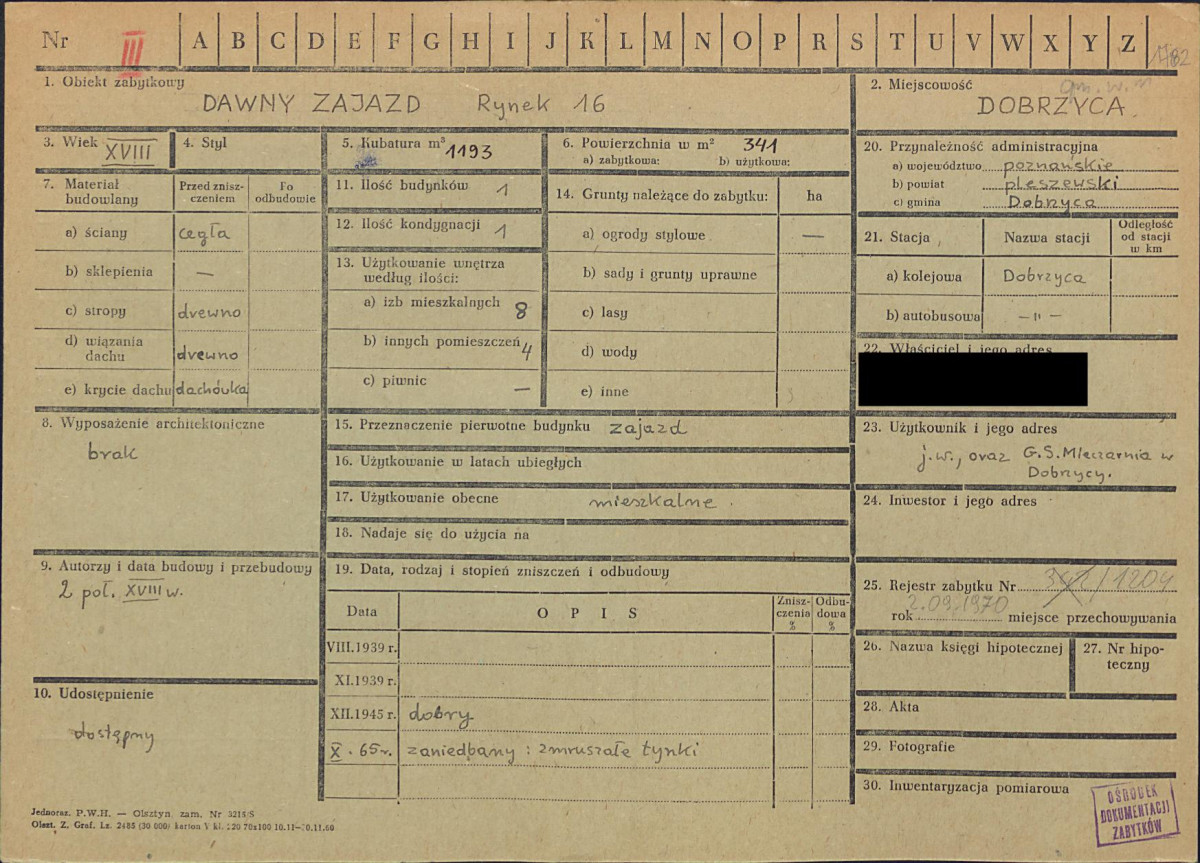 Nr III A B C D E F G H I J K L M N O P R S T U V W X Y Z 1/82
1. Obiekt zabytkowy
DAWNY ZAJAZD Rynek 16
2. Miejscowość gm. w. m
DOBRZYCA
3. Wiek XVIII
4. Styl
5. Kubatura m³ 1193
6. Powierzchnia w m² 341
a) zabytkowa: b) użytkowa:
7. Materiał budowlany
Przed zniszczeniem
Po odbudowie
a) ściany cegła
b) sklepienia —
c) stropy drewno
d) wiązania dachu drewno
e) krycie dachu dachówka
8. Wyposażenie architektoniczne
brak
9. Autorzy i data budowy i przebudowy
2 poł. XVIII w.
10. Udostępnienie
dostępny
11. Ilość budynków 1
12. Ilość kondygnacji 1
13. Użytkowanie wnętrza
według ilości:
a) izb mieszkalnych 8
b) innych pomieszczeń 4
c) piwnic —
14. Grunty należące do zabytku: ha
a) ogrody stylowe —
b) sady i grunty uprawne
c) lasy
d) wody
e) inne
15. Przeznaczenie pierwotne budynku zajazd
16. Użytkowanie w latach ubiegłych
17. Użytkowanie obecne mieszkalne.
18. Nadaje się do użycia na
19. Data, rodzaj i stopień zniszczeń i odbudowy
Data OPIS Zniszczenia % Odbudowa %
VIII.1939 r.
XI.1939 r.
XII.1945 r. dobry
X. 65 r. zaniedbany: zmruszałe tynki
20. Przynależność administracyjna
a) województwo poznańskie
b) powiat pleszewski
c) gmina Dobrzyca
21. Stacja Nazwa stacji Odległość od stacji w km
a) kolejowa Dobrzyca
b) autobusowa —"—
22. Właściciel i jego adres
23. Użytkownik i jego adres
j.w., oraz G.S. Mleczarnia w
Dobrzycy.
24. Inwestor i jego adres
25. Rejestr zabytku Nr /1204
rok 2.09.1970 miejsce przechowywania
26. Nazwa księgi hipotecznej
27. Nr hipoteczny
28. Akta
29. Fotografie
30. Inwentaryzacja pomiarowa
OŚRODEK
DOKUMENTACJI
ZABYTKÓW
Jednoraz. P.W.H. — Olsztyn zam. Nr 3215/S
Olszt. Z. Graf. Lz. 2485 (30 000) karton V kl. 220 70x100